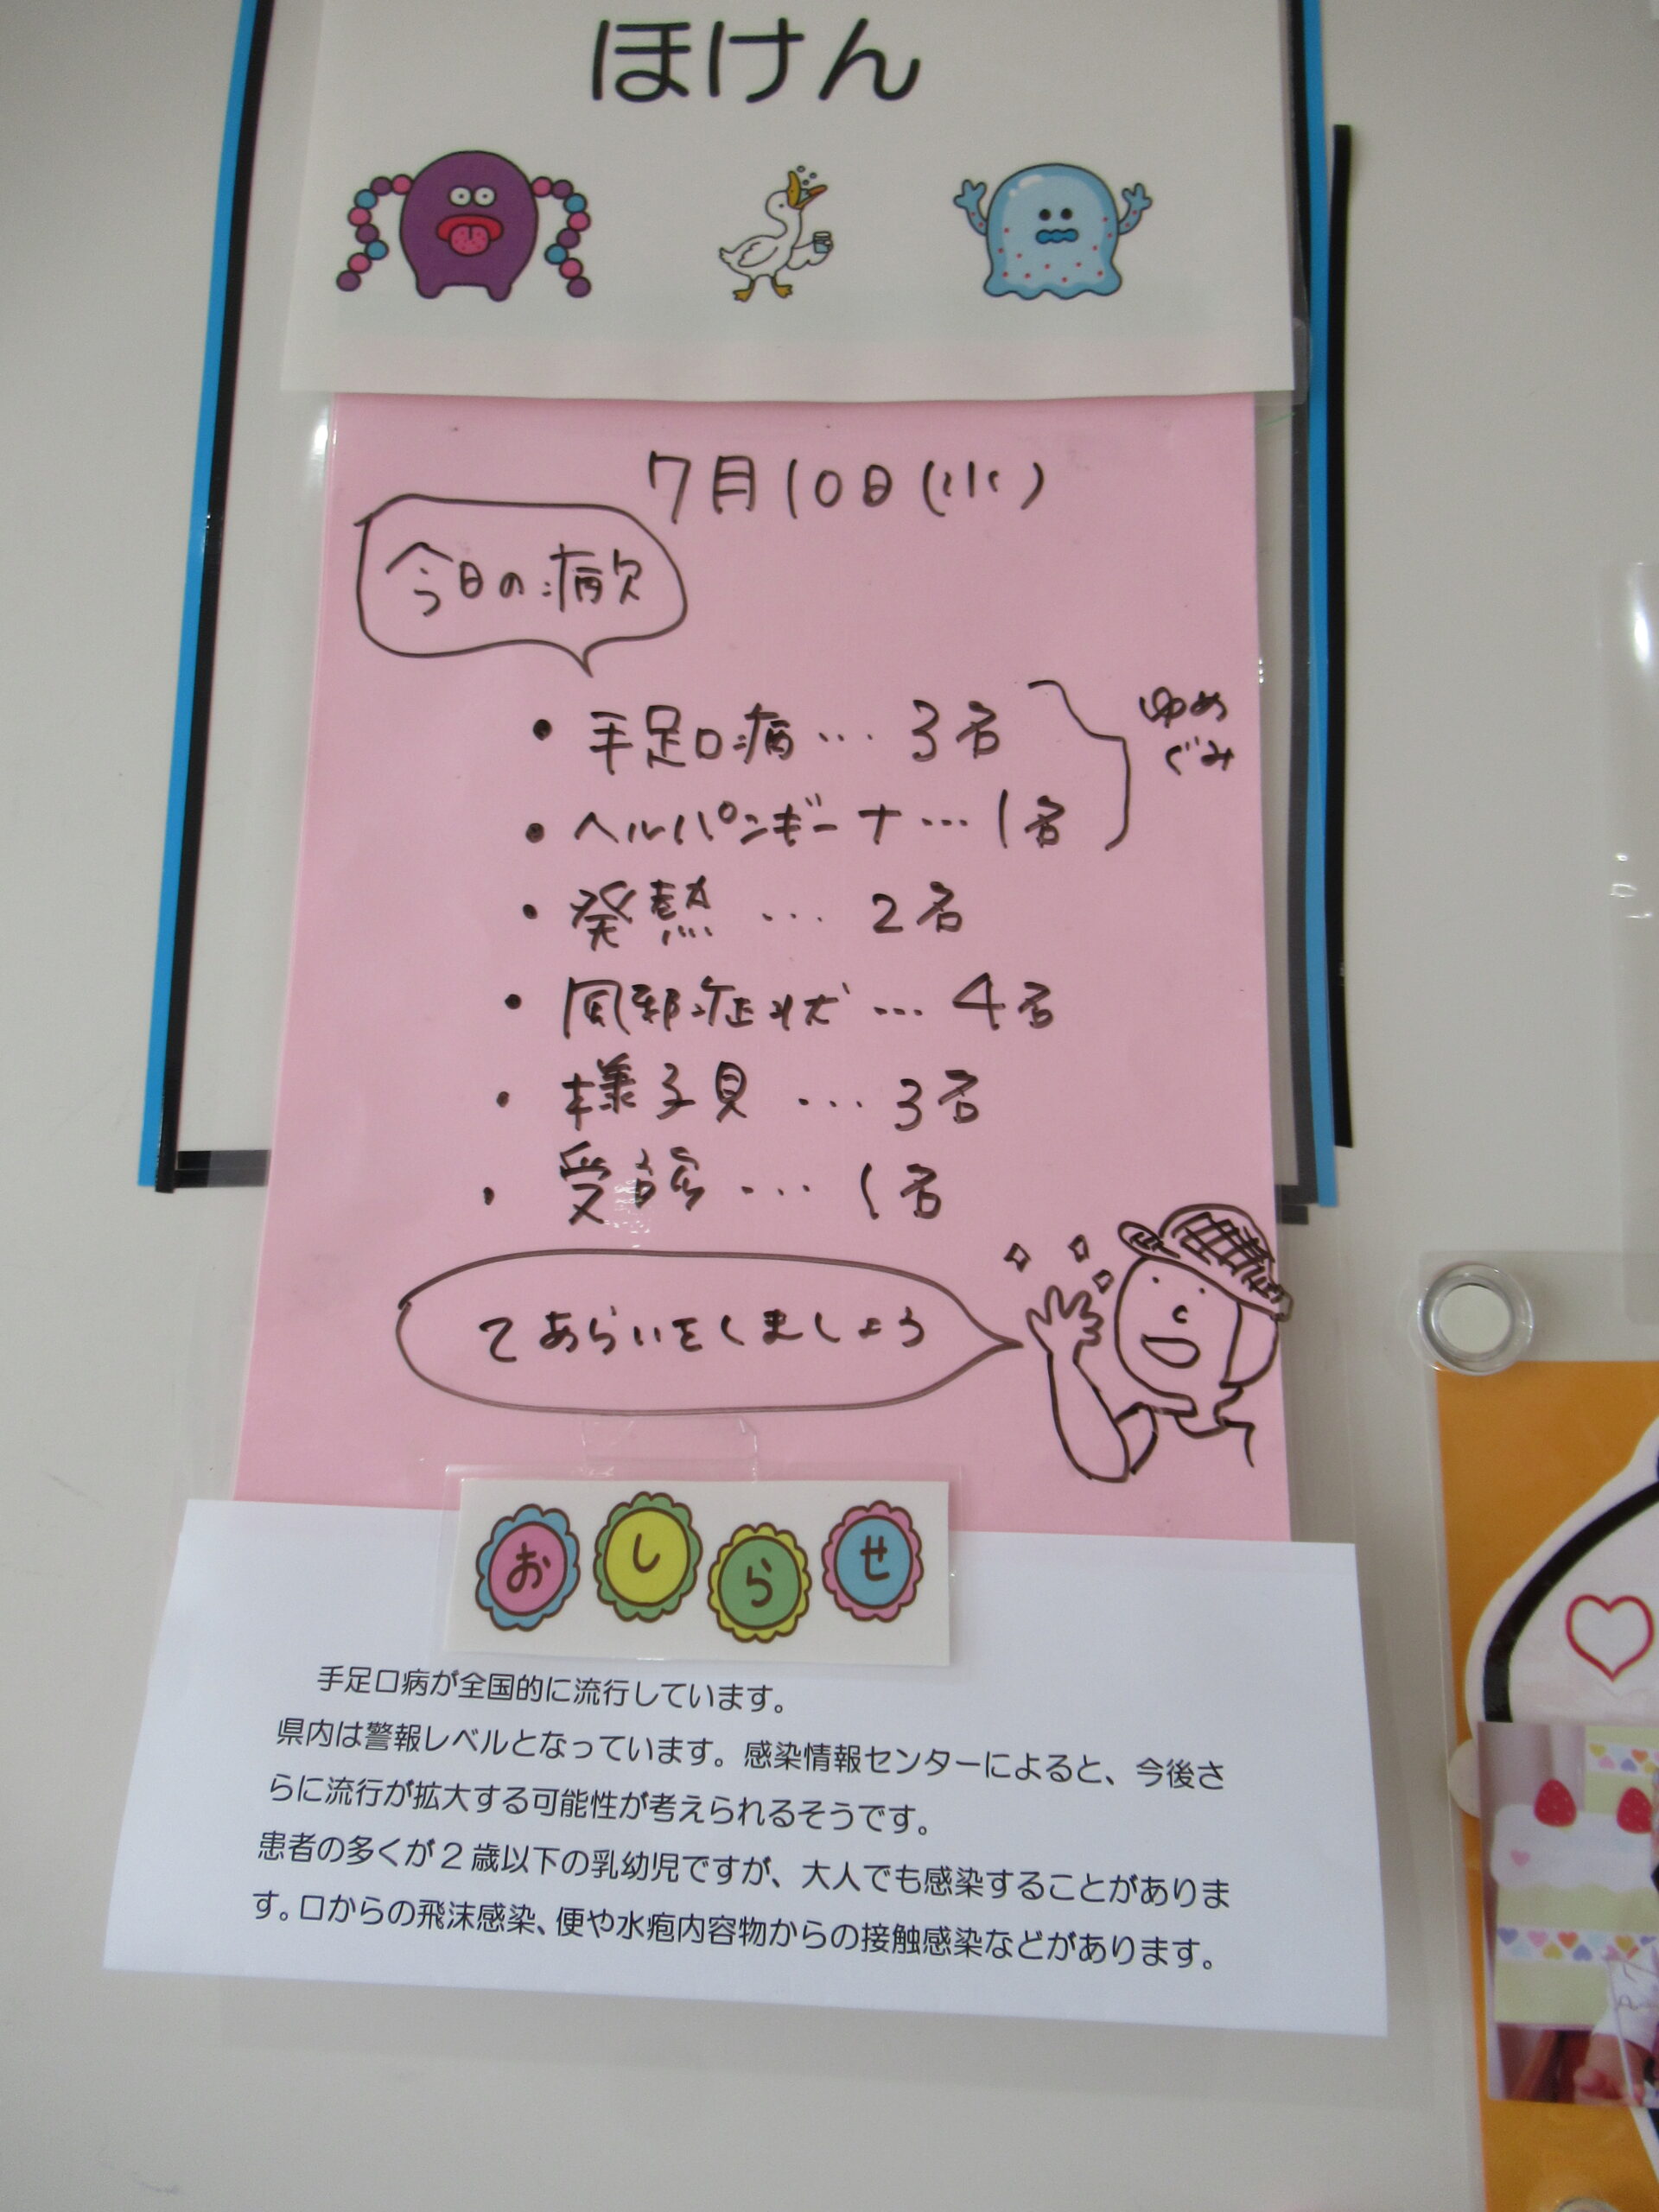 ほけん
7月10日(水)
今日の病欠
・手足口病…3名
ゆめ
ぐみ
・ヘルパンギーナ…1名
・発熱…2名
・風邪症状…4名
・様子見…3名
・受診…1名
てあらいをしましょう
おしらせ
手足口病が全国的に流行しています。
県内は警報レベルとなっています。感染情報センターによると、今後さ
らに流行が拡大する可能性が考えられるそうです。
患者の多くが2歳以下の乳幼児ですが、大人でも感染することがありま
す。口からの飛沫感染、便や水疱内容物からの接触感染などがあります。